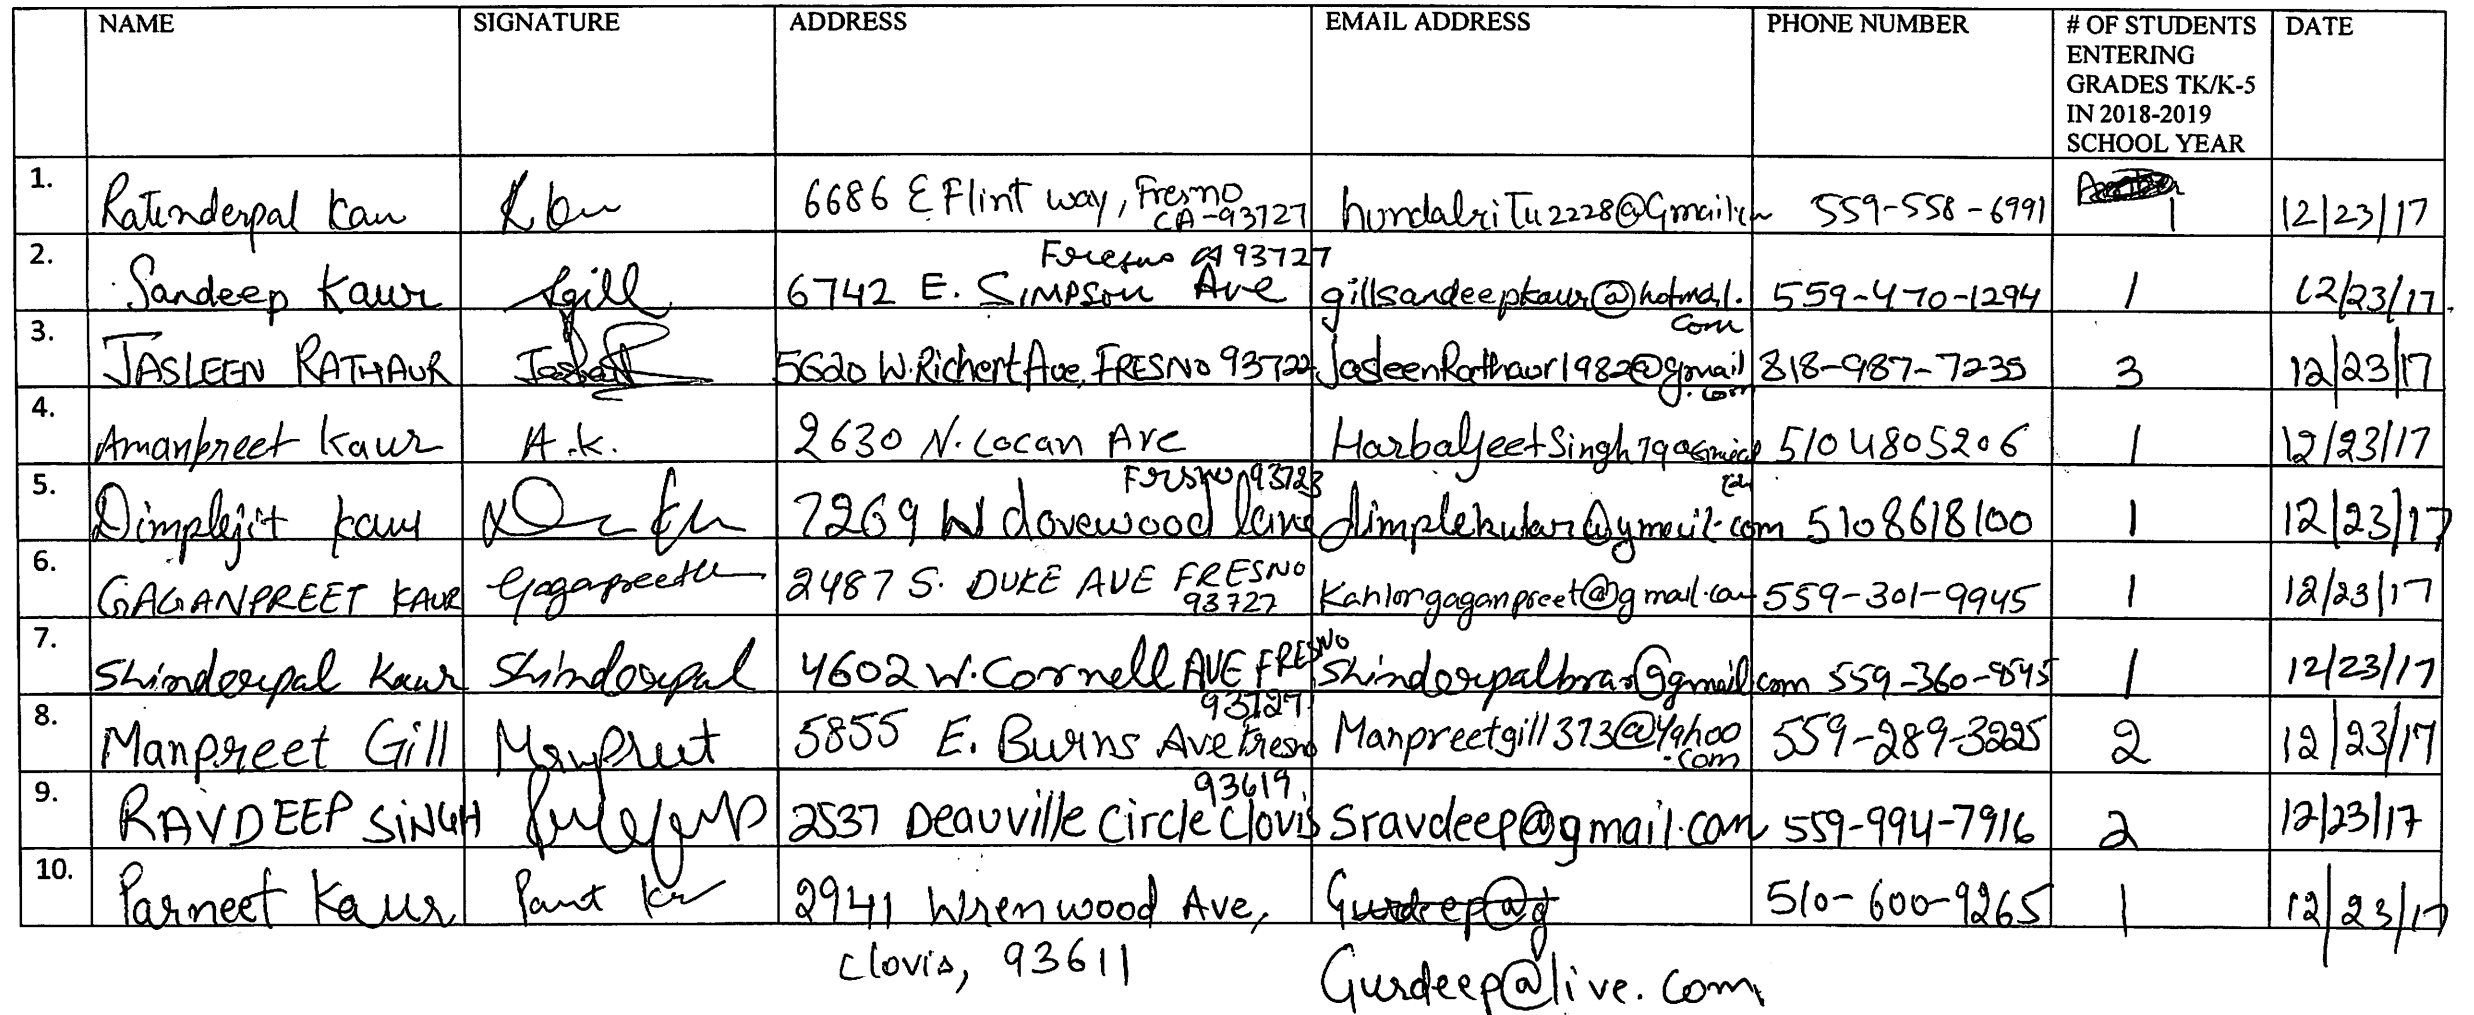 NAME SIGNATURE ADDRESS EMAIL ADDRESS PHONE NUMBER # OF STUDENTS ENTERING GRADES TK/K-5 IN 2018-2019 SCHOOL YEAR DATE
1. Ratinderpal Kau 6686 E Flint way, Fresno CA-93727 hundalriTu2228@Gmail 559-558-6991 1 12/23/17
2. Sandeep Kaur Sgill 6742 E. SIMPSON Ave Fresno CA 93727 gillsandeepkaur@hotmail.com 559-470-1294 1 12/23/17
3. JASLEEN RATHAUR 5620 W. Richert Ave, FRESNO 93722 JasleenRathaur1982@gmail.com 818-987-7235 3 12/23/17
4. Amanpreet Kaur A.K. 2630 N. Locan Ave 5104805206 1 12/23/17
5. Dimplejit Kaur 7269 W dovewood lane Fresno 93723 @ymail.com 5108618100 1 12/23/17
6. GAGANPREET KAUR 2487 S. DUKE AVE FRESNO 93727 Kahlongaganpreet@gmail.com 559-301-9945 1 12/23/17
7. Shinderpal Kaur Shinderpal 4602 W. Cornell AVE FRESNO shinderpalbrar@gmail.com 559-360-8545 1 12/23/17
8. Manpreet Gill Manpreet 5855 E. Burns Ave Fresno 93727 Manpreetgill373@Yahoo.com 559-289-3225 2 12/23/17
9. RAVDEEP SINGH 2537 Deauville Circle Clovis 93619 Sravdeep@gmail.com 559-994-7916 2 12/23/17
10. Parneet Kaur 2941 Wrenwood Ave, Gurdeep@g 510-600-9265 1 12/23/17
Clovis, 93611 Gurdeep@live.com